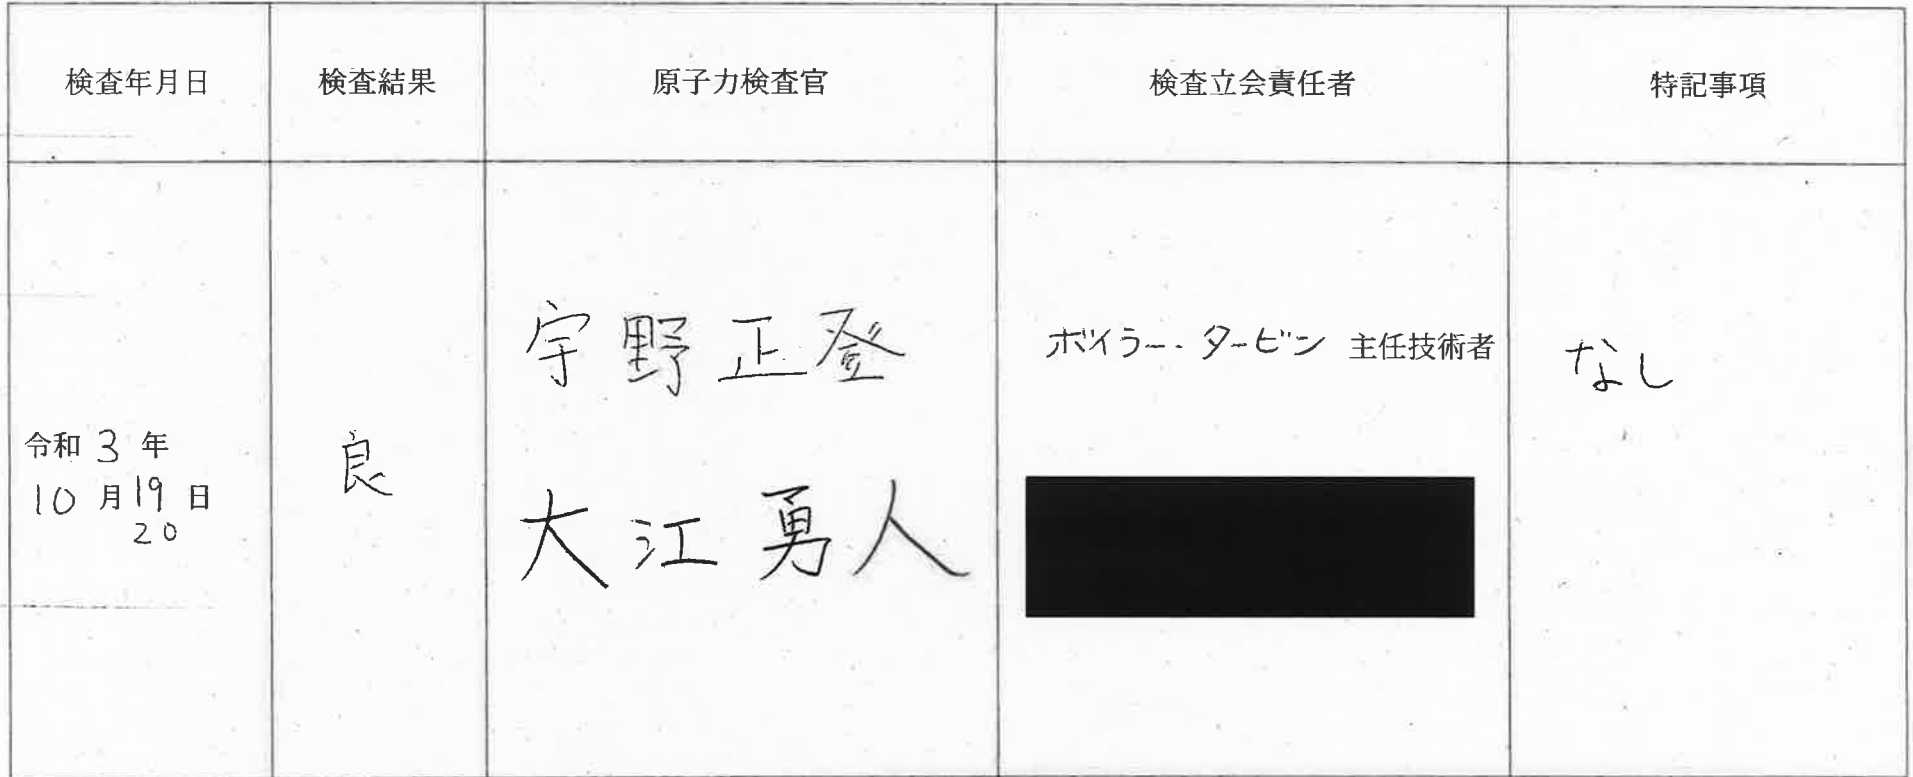 検査年月日
検査結果
原子力検査官
検査立会責任者
特記事項
令和 3 年
10 月 19 日
20
良
宇野正登
大江勇人
ボイラー・タービン 主任技術者
なし